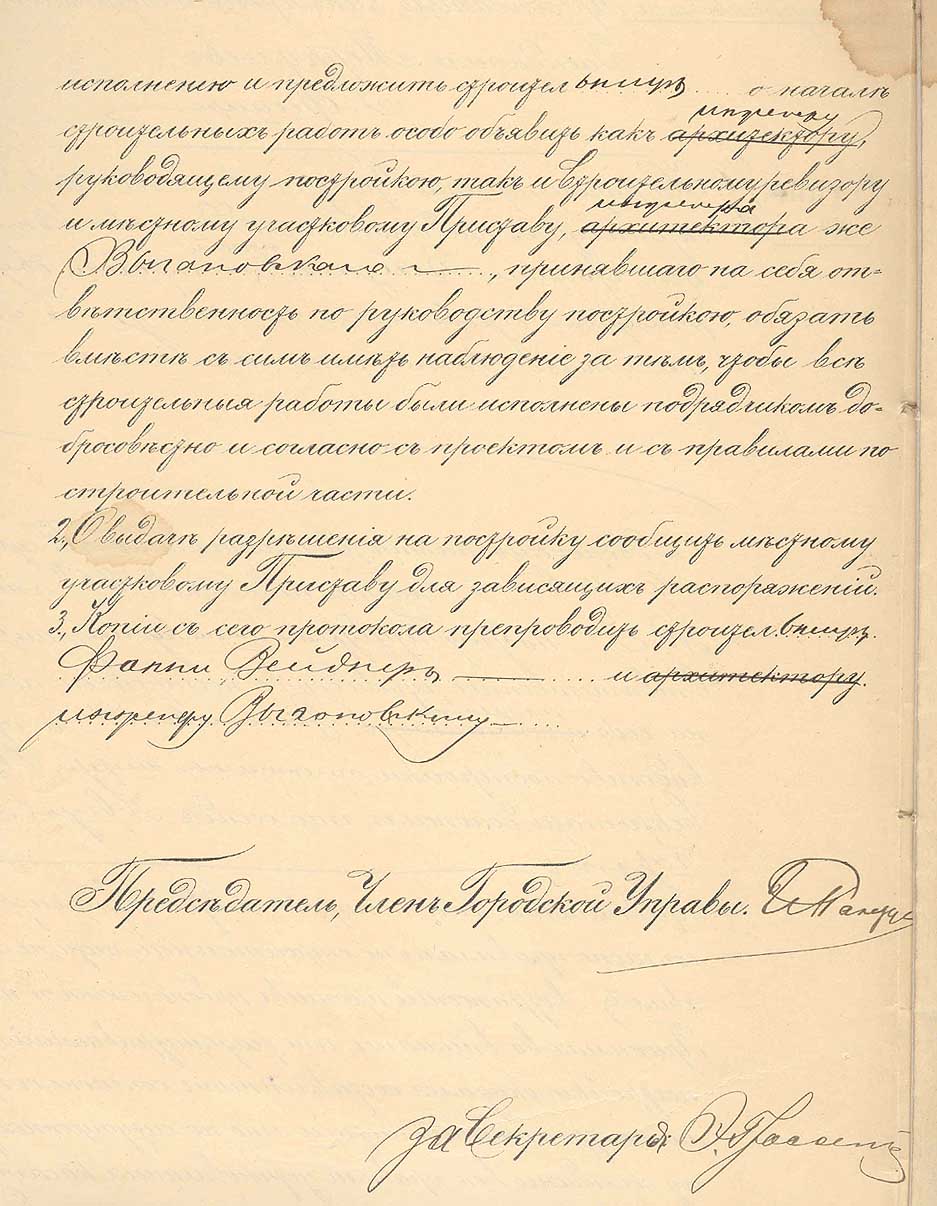 исполненію и предложить строительницѣ .... о началѣ
инженеру
строительныхъ работъ особо объявить какъ архитектору,
руководящему постройкою, такъ и Строительному ревизору
инженера
и мѣстному участковому Приставу, архитектора же
Выгановскаго, принявшаго на себя от-
вѣтственность по руководству постройкою, обязать
вмѣстѣ съ симъ имѣть наблюденіе за тѣмъ, чтобы всѣ
строительныя работы были исполнены подрядчикомъ до-
бросовѣстно и согласно съ проектомъ и съ правилами по
строительной части.
2., О выдачѣ разрѣшенія на постройку сообщить мѣстному
участковому Приставу для зависящихъ распоряженій.
3., Копіи съ сего протокола препроводить строительницѣ.
Фанни Вейднеръ и архитектору.
инженеру Выгановскому
Предсѣдатель, Членъ Городской Управы.
За Секретаря